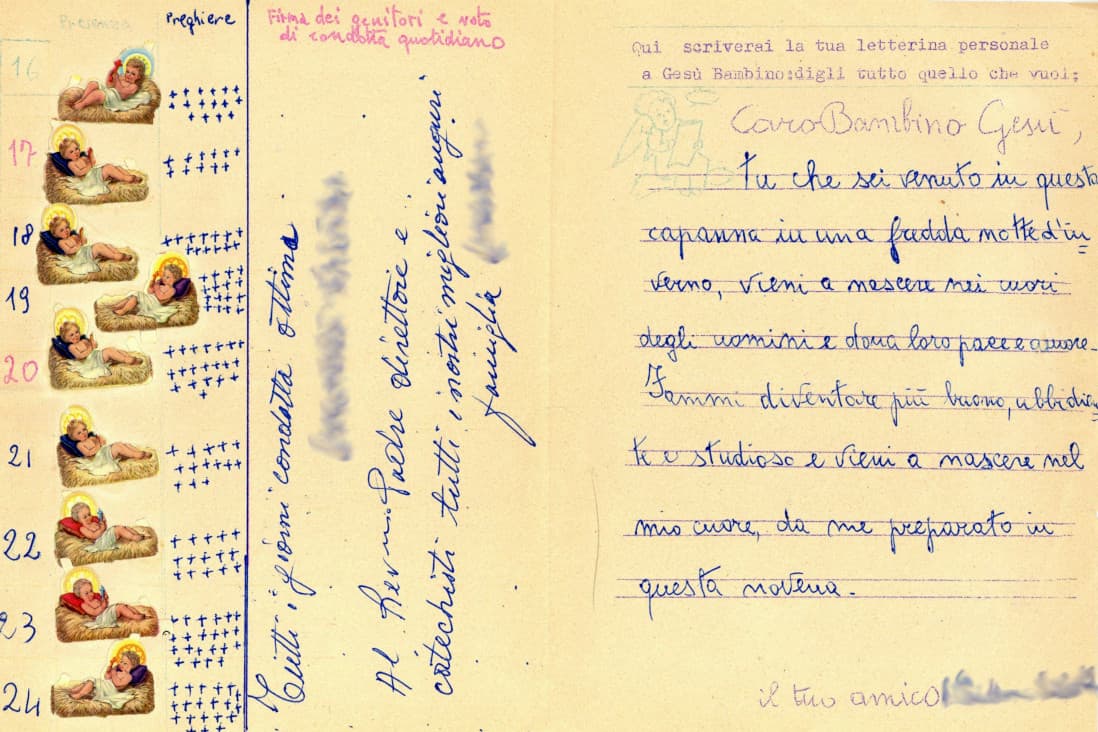 Presenza
Preghiere
16
17
18
19
20
21
22
23
24
Firma dei genitori e voto
di condotta quotidiano
Tutti i giorni condotta ottima
Al Rev.mo Padre direttore e
catechisti tutti i nostri migliori auguri
famiglia
Qui scriverai la tua letterina personale
a Gesù Bambino:digli tutto quello che vuoi;
Caro Bambino Gesù,
tu che sei venuto in questa
capanna in una fredda notte d'in
verno, vieni a nascere nei cuori
degli uomini e dona loro pace e amore.
Fammi diventare più buono, ubbidien
te e studioso e vieni a nascere nel
mio cuore, da me preparato in
questa novena.
il tuo amico